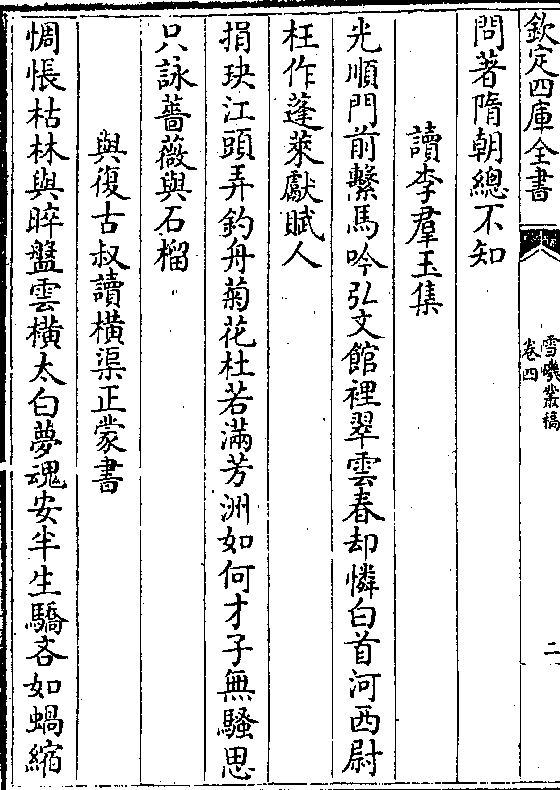 欽定四庫全書
雪磯叢稿
卷四
二
問著隋朝總不知
讀李羣玉集
光順門前繫馬吟弘文館裡翠雲春却憐白首河西尉
枉作蓬萊獻賦人
捐玦江頭弄釣舟菊花杜若滿芳洲如何才子無騷思
只詠薔薇與石榴
與復古叔讀橫渠正蒙書
惆悵枯林與晬盤雲橫太白夢魂安半生驕吝如蝸縮